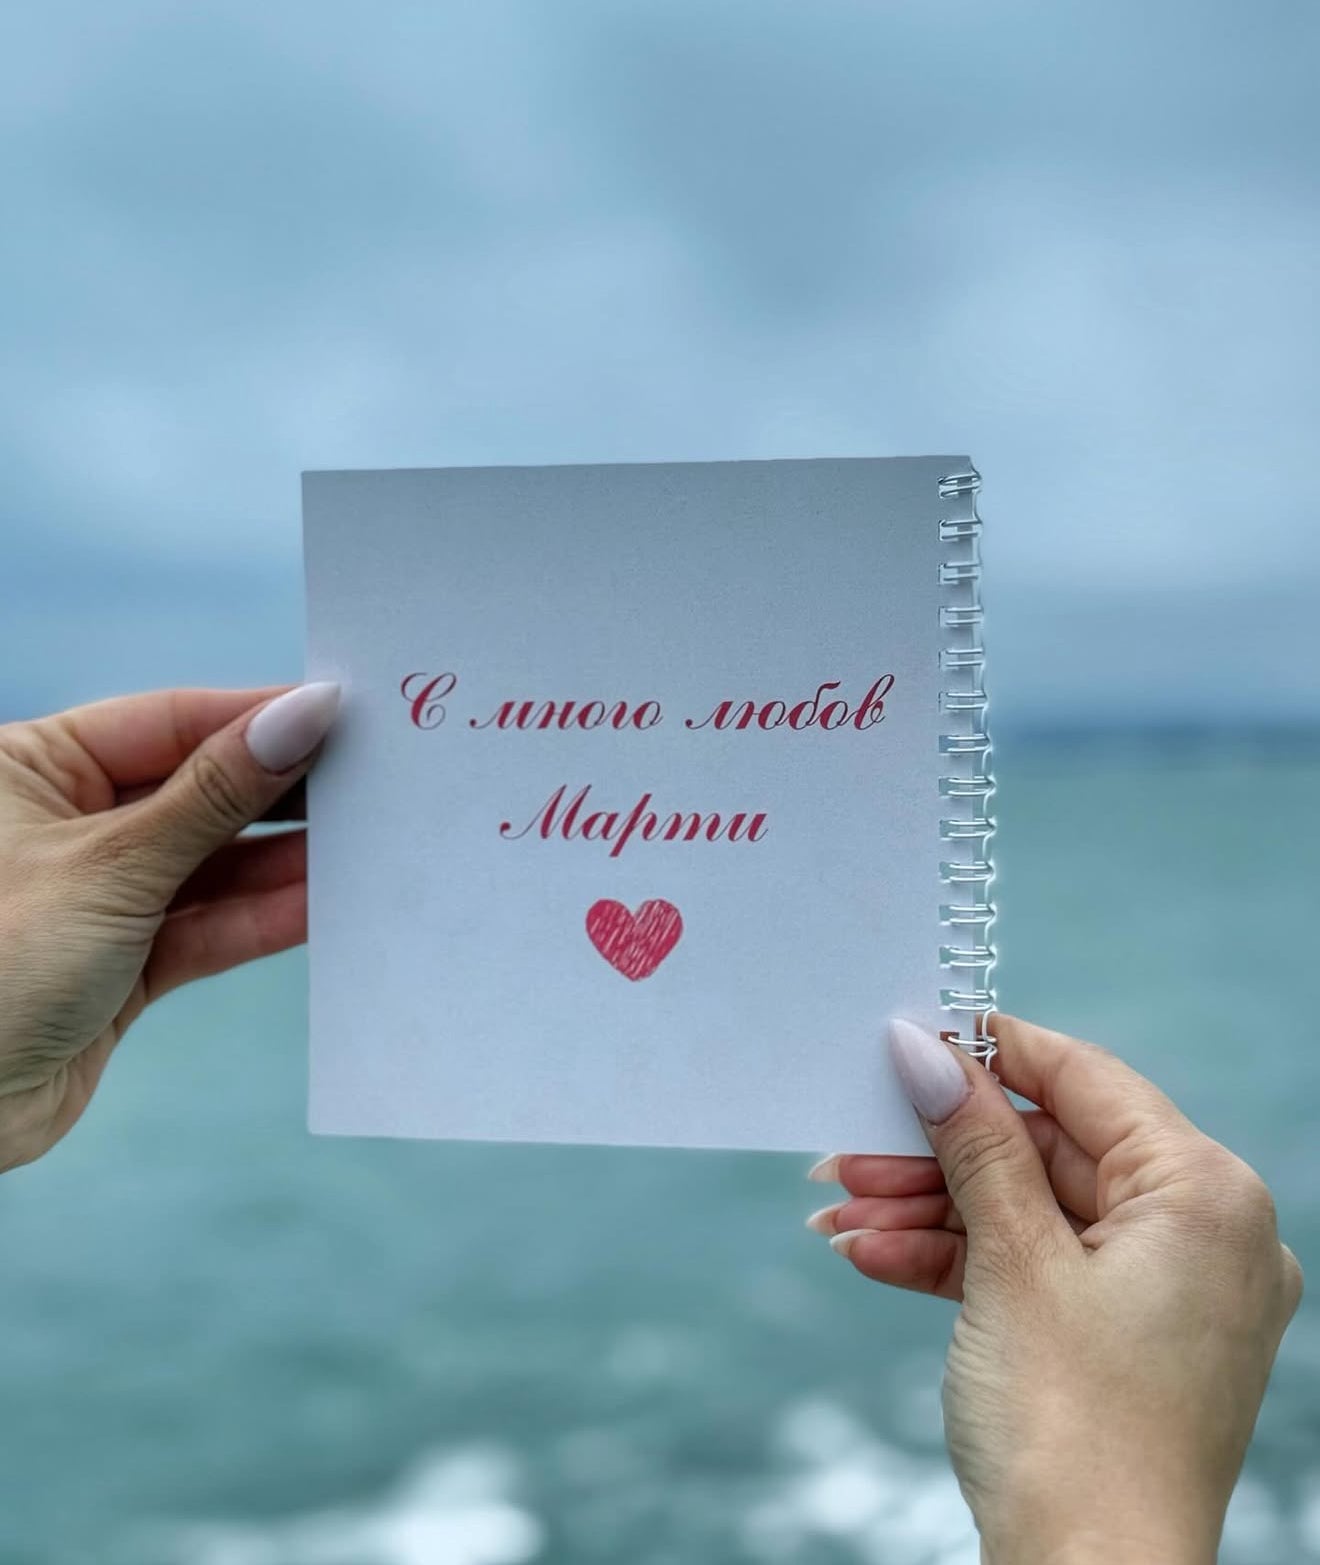 С много любов
Марти